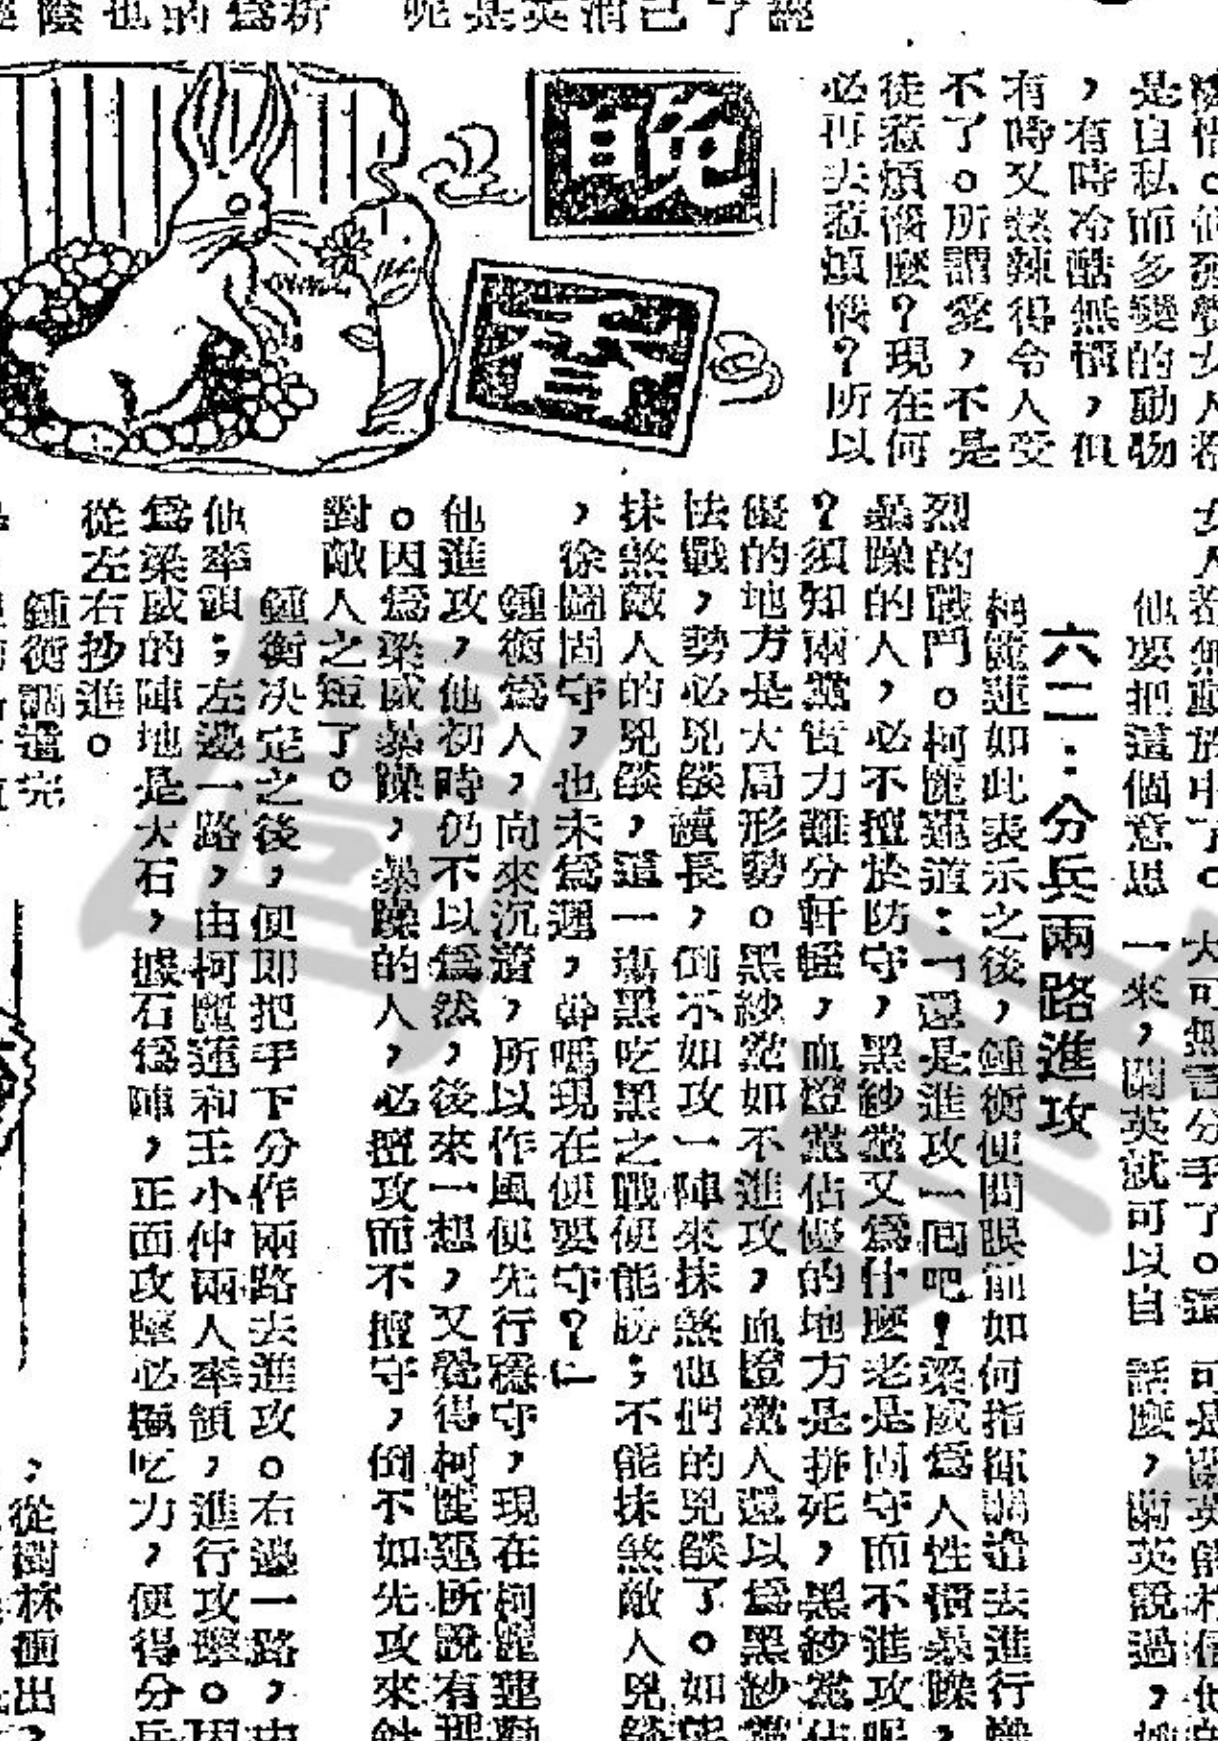 是自私而多變的動物
，有時冷酷無情，但
有時又熱辣得令人受
不了。所謂愛，不是
徒惹煩惱麼？現在何
必再去惹煩惱？所以
晚
春
他要把這個意思
一來，蘭英就可以自
話麼，蘭英說過，
六二：分兵兩路進攻
柯麗蓮如此表示之後，鍾衡便問眼前如何指揮調遣去進行
烈的戰鬥。柯麗蓮道：「還是進攻一回吧！梁威爲人性情暴躁，
暴躁的人，必不擅於防守，黑紗黨又爲什麼老是固守而不進攻呢
？須知兩黨實力難分軒輊，血燈黨佔優的地方是拚死，黑紗黨佔
優的地方是大局形勢。黑紗黨如不進攻，血燈黨人還以爲黑紗黨
怯戰，勢必兇燄續長，倒不如攻一陣來抹煞他們的兇燄了。如能
抹煞敵人的兇燄，這一塲黑吃黑之戰便能勝；不能抹煞敵人兇燄
，徐圖固守，也未爲遲，幹嗎現在便要守？」
鍾衡爲人，向來沉着，所以作風便先行穩守，現在柯麗蓮勸
他進攻，他初時仍不以爲然，後來一想，又覺得柯麗蓮所說有理
。因爲梁威暴躁，暴躁的人，必擅攻而不擅守，倒不如先攻來針
對敵人之短了。
鍾衡決定之後，便即把手下分作兩路去進攻。右邊一路，由
他率領；左邊一路，由柯麗蓮和王小仲兩人率領，進行攻擊。因
爲梁威的陣地是大石，據石爲陣，正面攻擊必極吃力，便得分兵
從左右抄進。
鍾衡調遣完
，從樹林衝出，